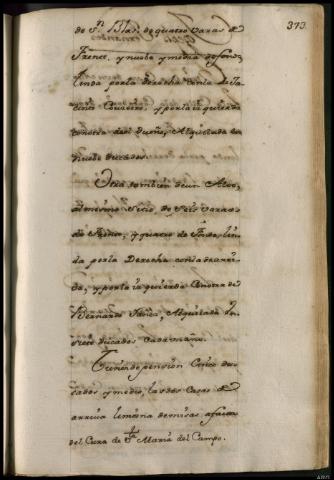 373.
de Sn. Blas, de quatro varas de
Frente, y nuebe y media de fondo,
linda por la derecha con la de Ja-
cinto, y por la izquierda
con otra del dueño, Alquilada en
nuebe ducados.
Otra tambien de un Alto,
al mismo Sitio, de Seis varas
de Frente, y quatro de Fondo, lin-
da por la Derecha con la de arri-
va, y por la izquierda con otra de
Bernardo, Alquilada en
siete ducados cada un año.
Tienen de pension Cinco du-
cados y medio, las dos Casas de
arriva limosna de misas a favor
del Cura de Sta. Maria del Campo.